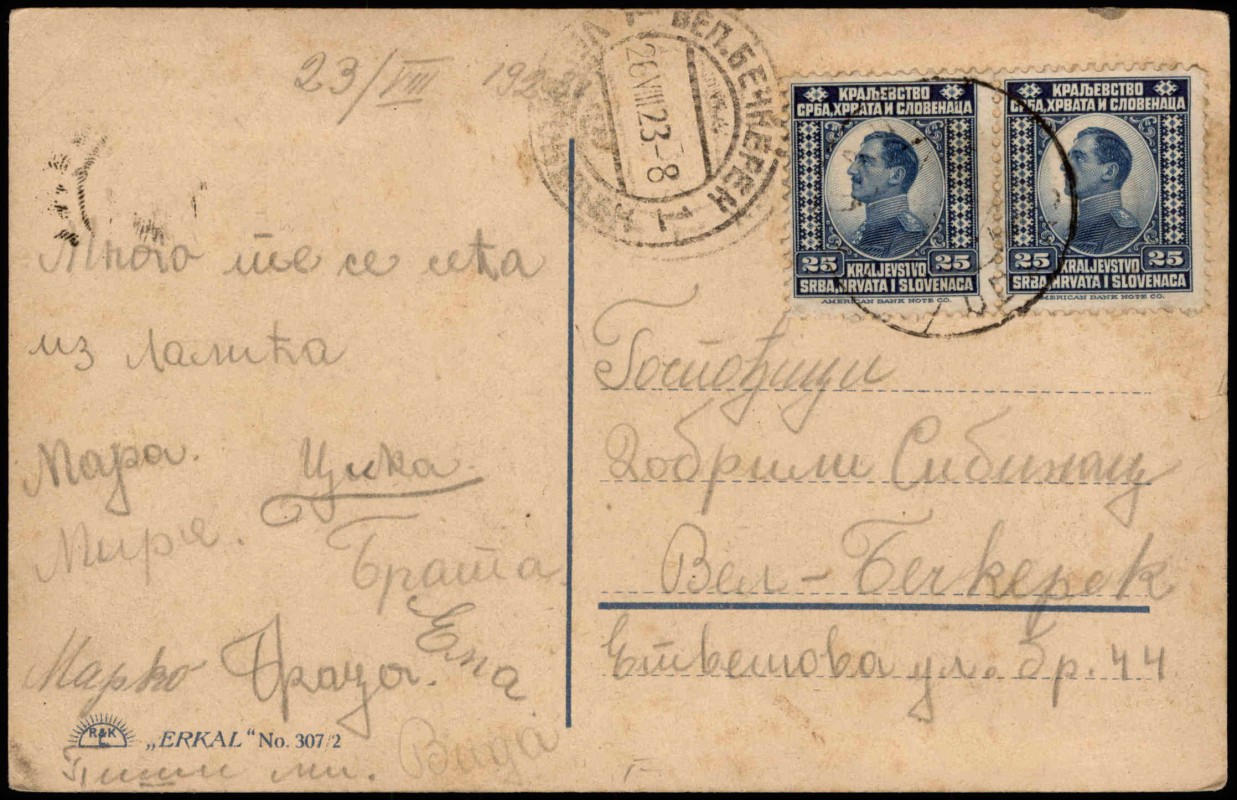 23/VIII 1923
ВЕЛ. БЕЧКЕРЕК
26 VIII 23-8
КРАЉЕВСТВО
СРБА, ХРВАТА И СЛОВЕНАЦА
25 KRALJEVSTVO 25
SRBA, HRVATA I SLOVENACA
AMERICAN BANK NOTE CO.
КРАЉЕВСТВО
СРБА, ХРВАТА И СЛОВЕНАЦА
25 KRALJEVSTVO 25
SRBA, HRVATA I SLOVENACA
AMERICAN BANK NOTE CO.
Много те се сећа
из Лалића
Мара. Цика
Мира. Брата
Марко Браца. Ела
Вида
Пиши ми.
Госпођици
Добрили Сибинац
Вел-Бечкерек
Етвешова ул. бр. 44
R&K
L
„ERKAL" No. 307/2